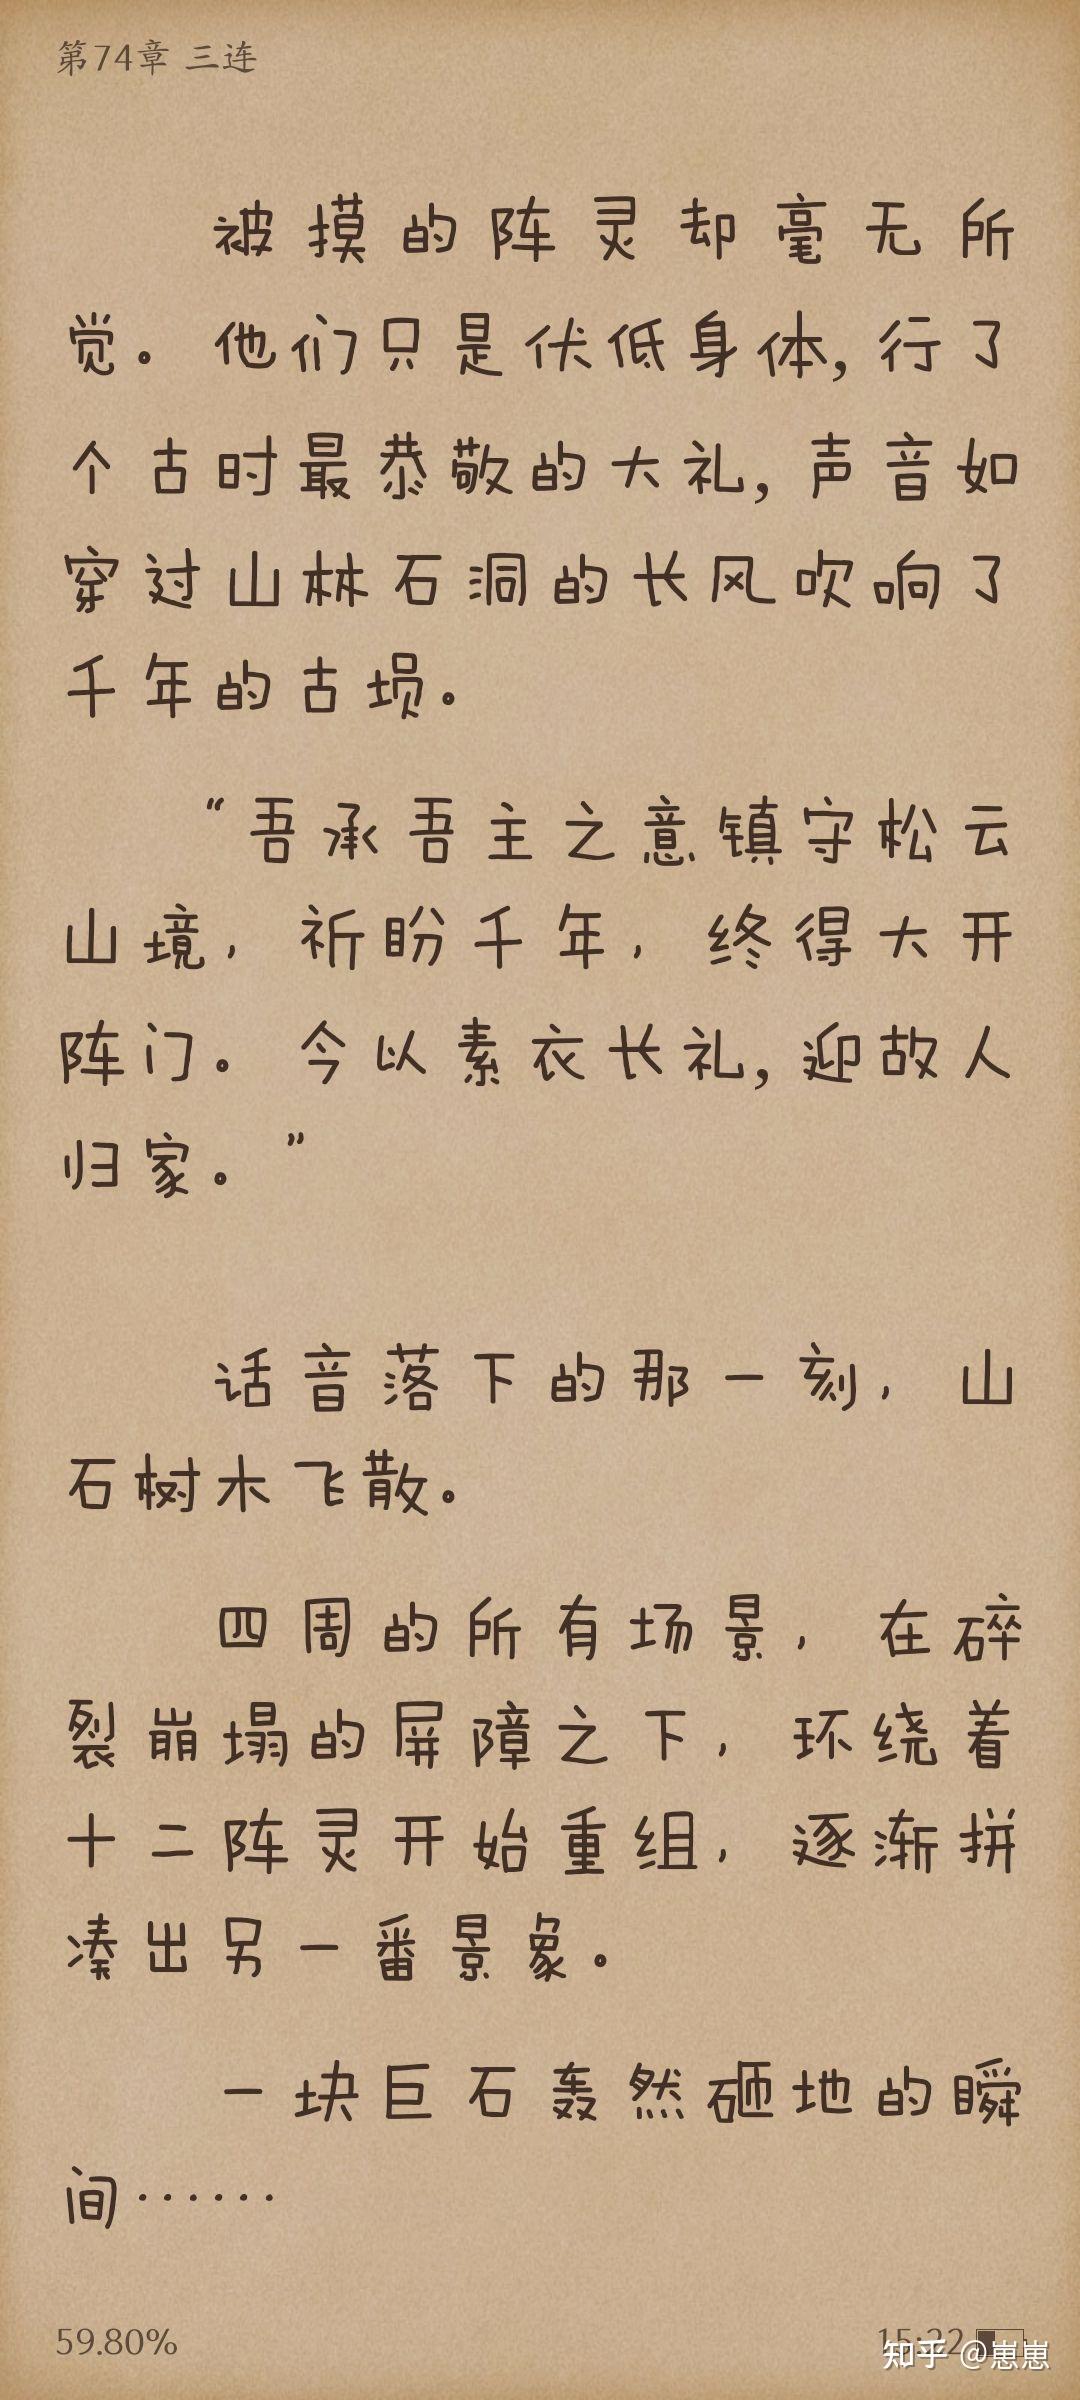 第74章 三连
被摸的阵灵却毫无所
觉。他们只是伏低身体,行了
个古时最恭敬的大礼,声音如
穿过山林石洞的长风吹响了
千年的古埙。
“吾承吾主之意镇守松云
山境，祈盼千年，终得大开
阵门。今以素衣长礼,迎故人
归家。”
话音落下的那一刻，山
石树木飞散。
四周的所有场景，在碎
裂崩塌的屏障之下，环绕着
十二阵灵开始重组，逐渐拼
凑出另一番景象。
一块巨石轰然砸地的瞬
间······
59.80%
15:22
知乎 @崽崽